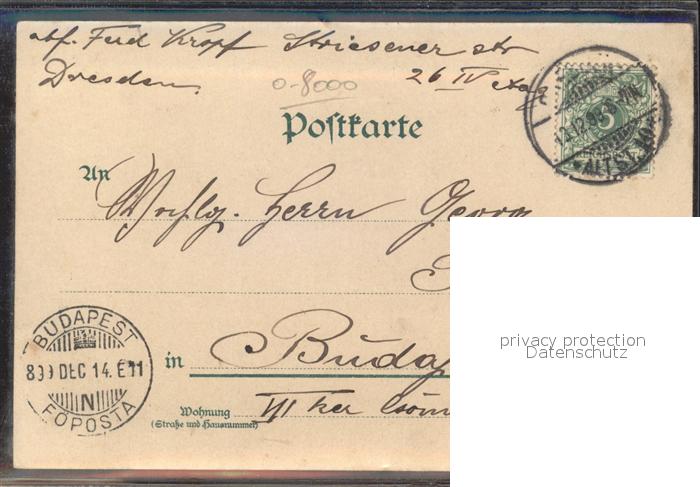 abs. Ferd Kropf Striesener str
Dresden. 26 IV etag
0-8000
Postkarte
An
Wohlg. Herrn Georg
BUDAPEST
DEC 14. E
N
FŐPOSTA
in Buda
Wohnung VII ker
(Straße und Hausnummer)
5
ALTST.
privacy protection
Datenschutz